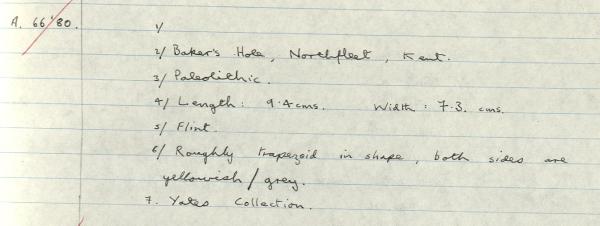 A. 66'80.
1/
2/ Baker's Hole, Northfleet, Kent.
3/ Paleolithic.
4/ Length: 9.4cms. Width: 7.3. cms.
5/ Flint.
6/ Roughly trapezoid in shape, both sides are
yellowish/grey.
7. Yates Collection.